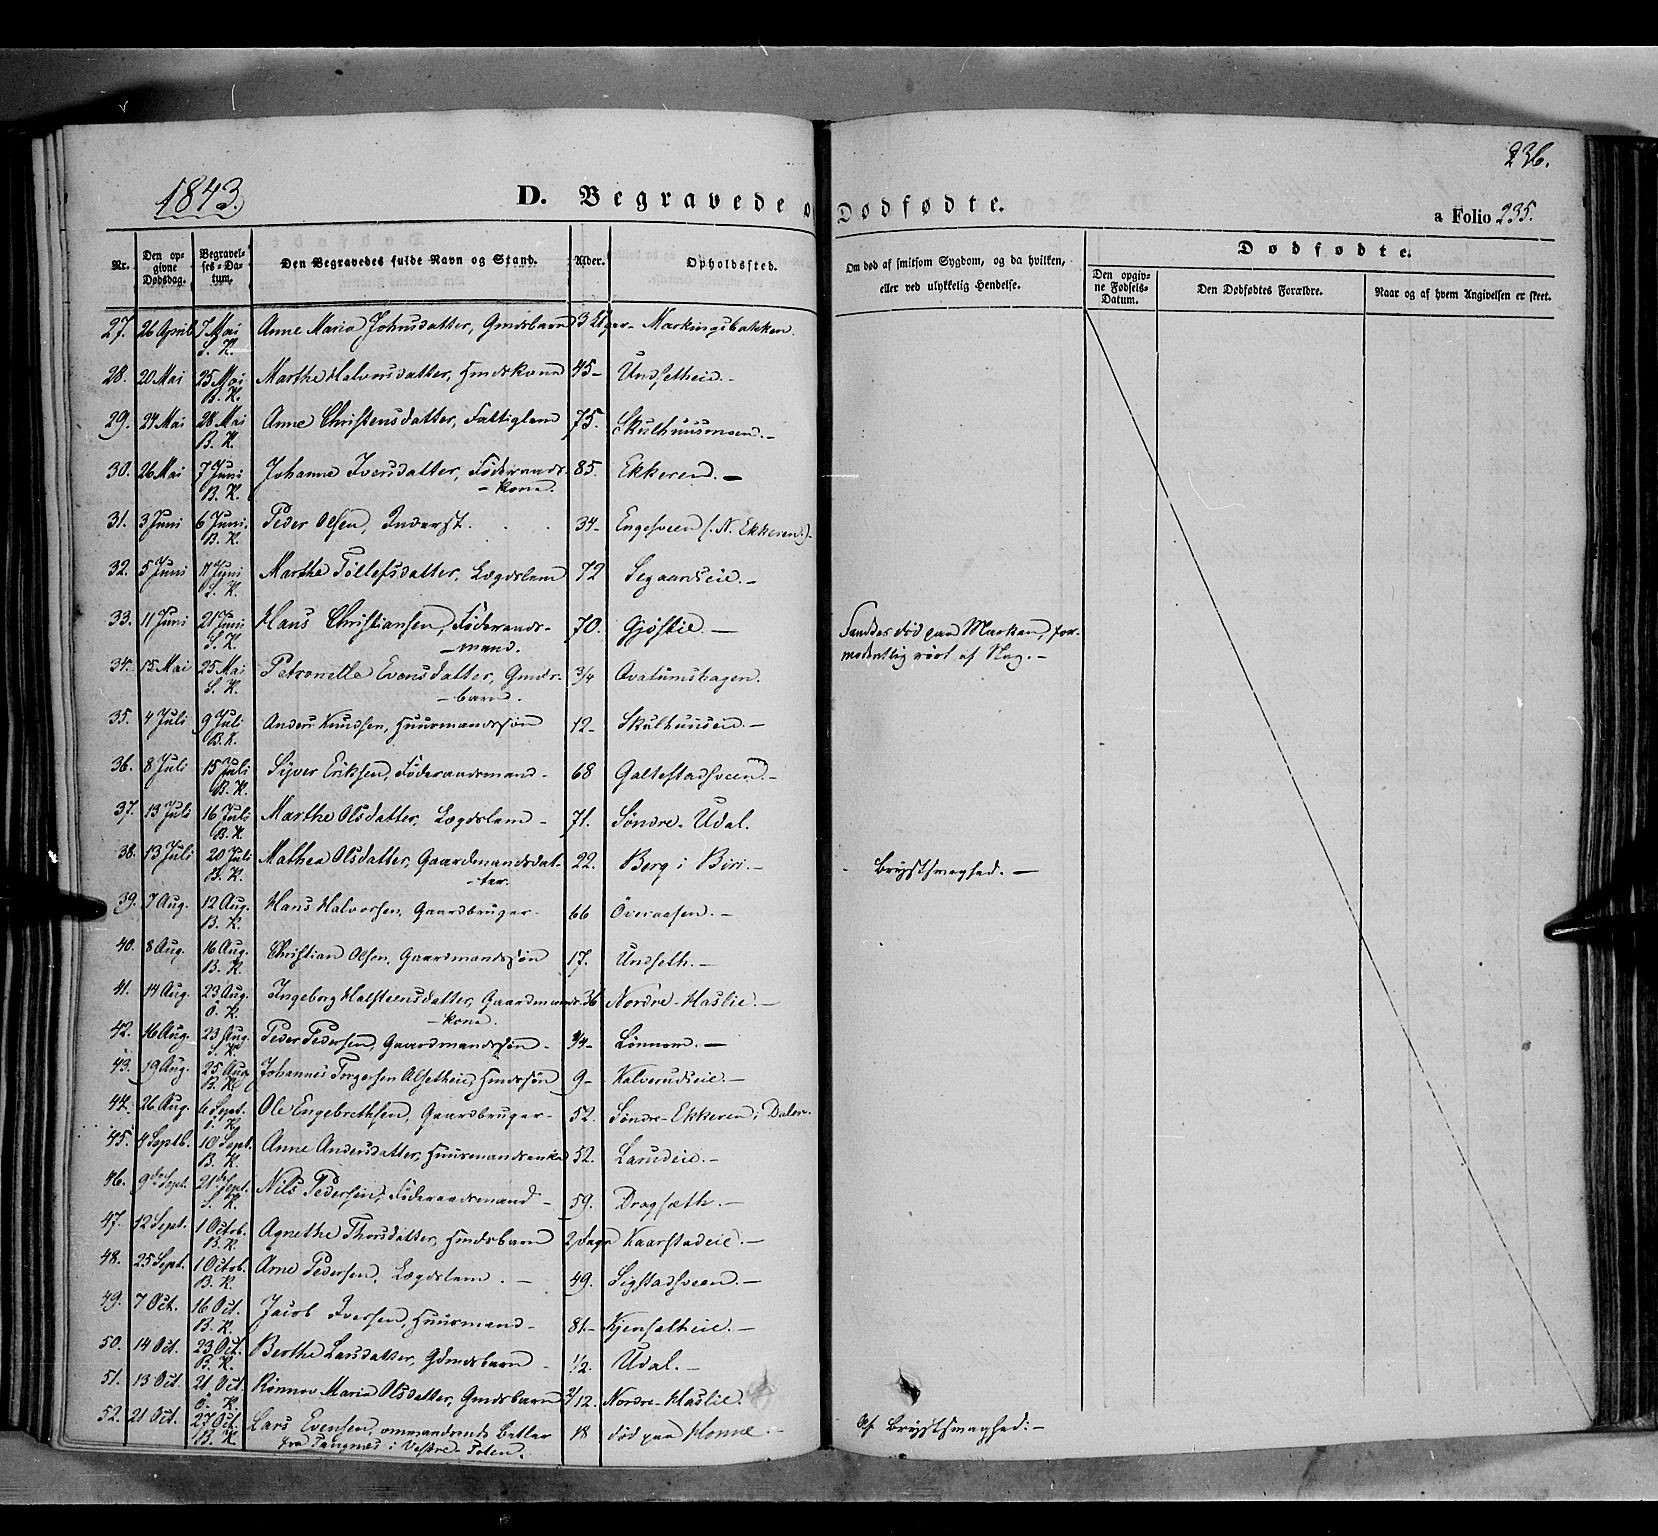 236.
1843.
D. Begravede o Dødfødte.
a Folio 235.
Nr. Den opgivne Dødsdag. Begravelses-Datum. Den Begravedes fulde Navn og Stand. Alder. Opholdssted. Om død af smitsom Sygdom, og da hvilken, eller ved ulykkelig Hendelse. Dødfødte. Den opgivne Fødsels-Datum. Den Dødfødtes Forældre. Naar og af hvem Angivelsen er skeet.
27. 26 April 7 Mai S. K. Anne Maria Johnsdatter, Gmdsbarn 3 Uger - Markingsbakken.
28. 20 Mai 25 Mai B. K. Marthe Halvorsdatter, Hmdskone 45 - Undsetheie. -
29. 24 Mai 28 Mai B. K. Anne Christensdatter, Fattiglem 75. Skulhuusmoen. -
30. 26 Mai 7 Juni B. K. Johanne Iversdatter, Föderaads-kone. 85. Ekkeren. -
31. 3 Juni 6 Juni. B. K. Peder Olsen, Inderst. 34 - Engesveen (: N. Ekkeren :) -
32. 5 Juni 11 Juni S. K. Marthe Tollefsdatter, Lægdslem 72 Segaardseie. -
33. 11 Juni 21 Juni S. K. Hans Christiansen, Föderaads-mand. 70. Gjöslie. - Fandtes död paa Marken, for-
modentlig rört af Slag. -
34. 15 Mai 25 Mai S. K. Petronelle Evensdatter, Gmds-barn. 3/4 Ovatumshagen.
35. 4 Juli 9 Juli B. K. Anders Knudsen, Huusmandssön 12 - Skulhuusen. -
36. 8 Juli 15 Juli B. K. Sijver Eriksen, Föderaadsmand - 68 Galtestadsveen. -
37. 13 Juli 16 Juli B. K. Marthe Olsdatter, Lægdslem - 71. Söndre-Udal.
38. 13 Juli 20 Juli B. K. Mathea Olsdatter, Gaardmandsdat-ter. 22. Berg i Biri. - Brystsvaghed. -
39. 7 Aug. 12 Aug. B. K. Hans Halvorsen, Gaardbruger - 66 Överaasen. -
40. 8 Aug. 16 Aug. B. K. Christian Olsen, Gaardmandssön 17. Undseth. -
41. 14 Aug. 23 Aug. Ö. K. Ingeborg Halsteensdatter, Gaardmands-kone. 36 Nordre-Haslie. -
42. 16 Aug. 23 Aug. S. K. Peder Pedersen, Gaardmandssön - 3/4 - Lönnom. -
43. 19 Aug. 25 Aug B. K. Johannes Torgersen Alsetheie, Hmdssön 9 - Kalverudseie. -
44. 26 Aug. 6 Sept. Ö. K. Ole Engebrethsen, Gaardbruger - 52. Söndre-Ekkeren i Dalen.
45. 4 Septb. 10 Sept. B. K. Anne Andersdatter, Huusmandsenke 52. Larudeie. -
46. 9de Sept. 21de Sept. S. K. Nils Pedersen, Föderaadsmand - 59. Dragsæth. -
47. 12 Sept. 1 Octob. B. K. Agnethe Thorsdatter, Hmdsbarn 2 Dage Kaarstadeie. -
48. 25 Sept. 1 Octob. B. K. Arne Pedersen, Lægdslem. - 49. Sigstadsveen. -
49. 7 Oct. 16 Oct. B. K. Jacob Iversen, Huusmand - 81 - Kjensetheie. -
50. 14 Oct. 23 Oct. B. K. Berthe Larsdatter, Gdmdsbarn - 1/2. Udal. -
51. 13 Oct. 21 Oct. Ö. K. Rönnov Maria Olsdatter, Gmdsbarn 2/12. Nordre-Haslie.
52. 21 Oct. 27 Oct. B. K. Lars Evensen, ommandrende Betler fra Tangnæs i Vestre-Toten. 18 död paa Honne. - Af Brystsvaghed. -